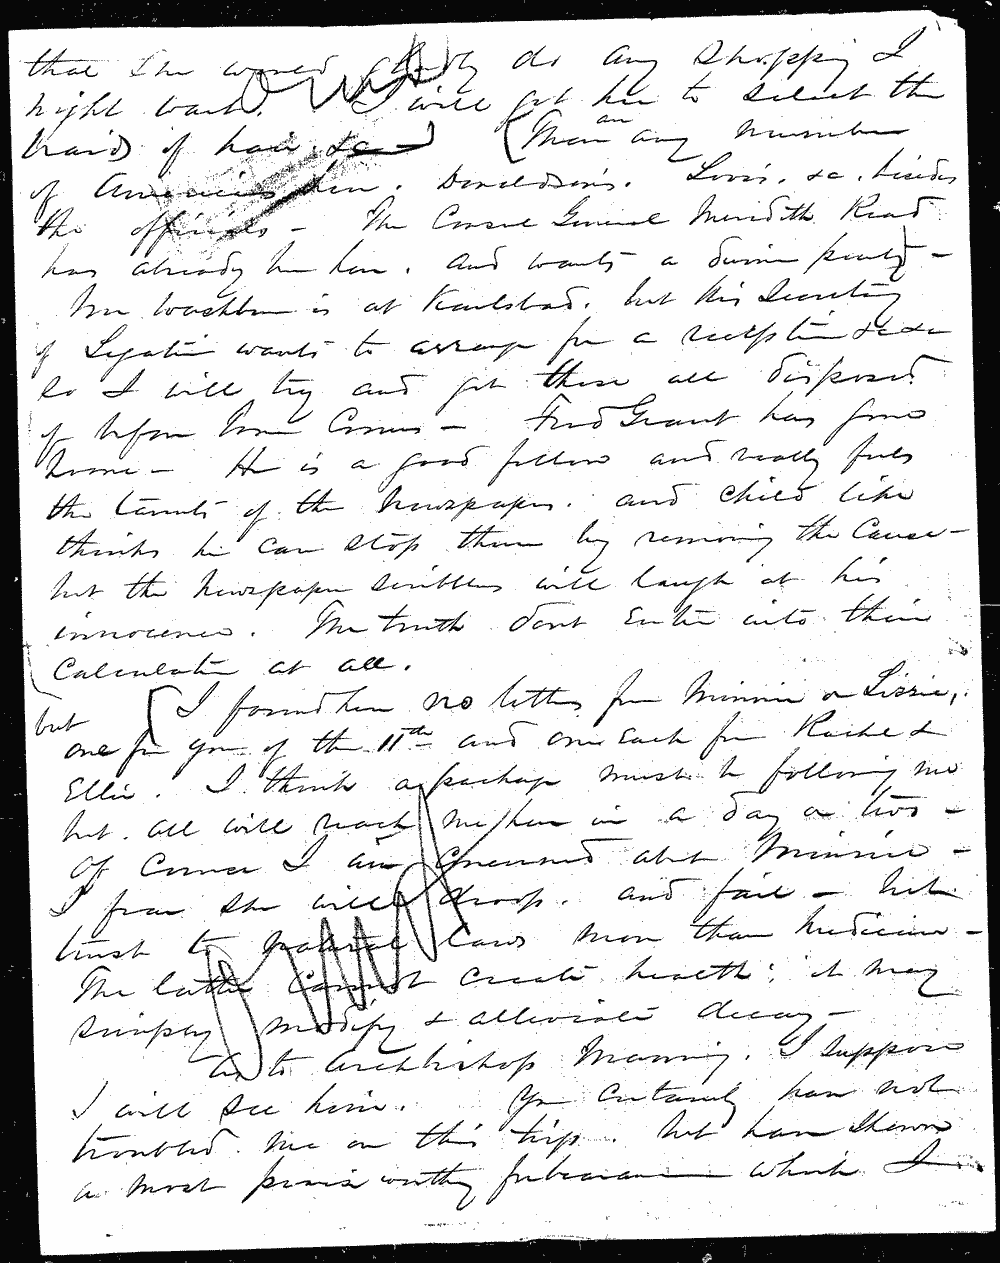 that she would gladly do any shopping I
might want. I will get her to select the
braid of hair &c
There are any number
of Americans here. Donaldson's. Lovis. &c. besides
the officials - The Consul General Meredith Read
has already been here. and wants a dinner party -
Mr Washburn is at Karlsbad. but his Secretary
of Legation wants to arrange for a reception &c &c
so I will try and get these all disposed
of before Tom Comes - Fred Grant has gone
home - He is a good fellow and really feels
the taunts of the Newspapers. and child like
thinks he can stop them by removing the Cause -
but the Newspaper scribblers will laugh at his
innocence. The truth dont Enter into their
Calculation at all.
I found here no letters from Minnie or Lizzie,
but
one from you of the 11th and one Each from Rachel &
Ellie. I think a package must be following me
but. all will reach me here in a day or two -
Of Course I am Concerned abt Minnie -
I fear she will droop. and fail - but
trust to natural laws more than Medicine -
The latter Cannot create health: it may
simply modify & alleviate decay -
As to Archbishop Manning. I suppose
I will see him. You Certainly have not
troubled me on this trip. but have shown
a most praiseworthy forbearance which I